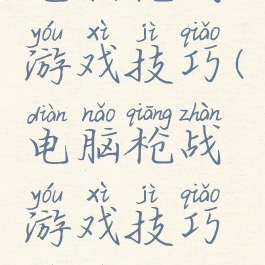 yóu xì jì qiǎo
游戏技巧(
diàn nǎo qiāng zhàn
电脑枪战
yóu xì jì qiǎo
游戏技巧